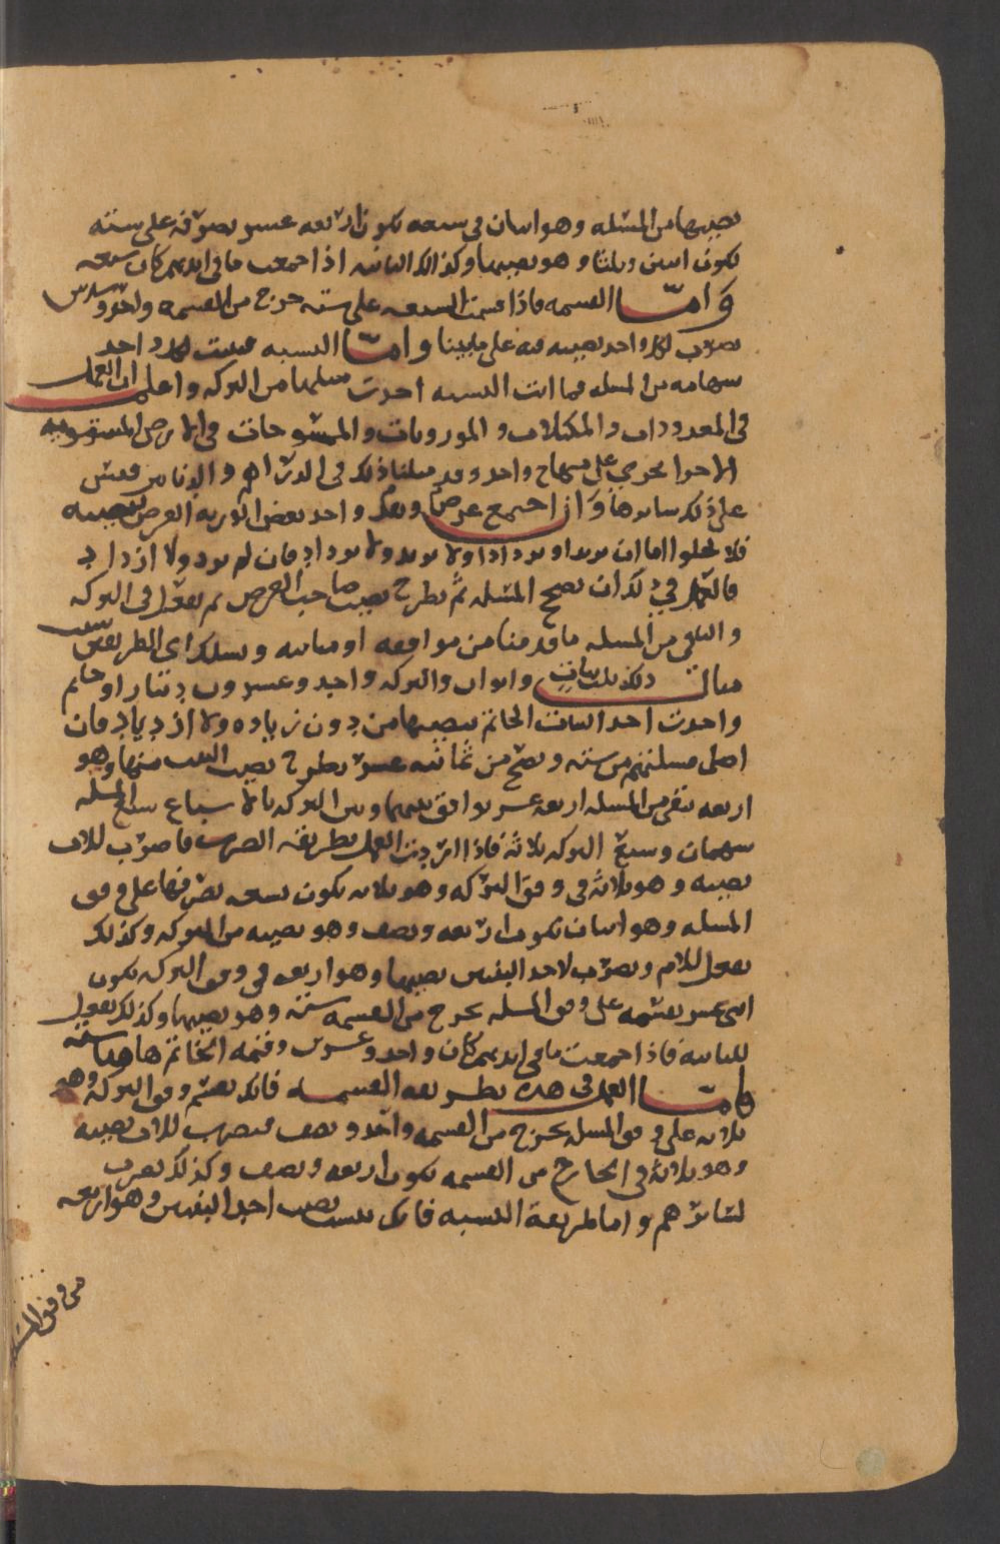 نصيبها من المسئله وهو اثنان في سبعه يكون اربعه عشر تصرفه على سته
يكون اثنين وثلثا وهو نصيبها وكذلك الثانيه اذا جمعت ما في ايديهم كان سبعه
واما القسمه فاذا قسمت السبعه على سته خرج من القسمه واحد وسدس
تضرب لكل واحد نصيبه فيه على ما بينا واما النسبه فنسبت لكل واحد
سهامه من المسله فما اتت النسبه اخذت مثلها من التركه واعلم ان العمل
في المعدودات والمكيلات والموزونات والممسوحات وفي الارض المستويه
الاجزا يجري على منهاج واحد وقد مثلنا ذلك في الدراهم والدنانير فقس
على ذلك سايرها وان اجتمع عرض ونقد واخذ بعض الورثه العرض بنصيبه
فلا يخلوا اما ان يزيد او يزداد او لا يزيد ولا يزداد فان لم يزد ولا ازداد
فالعمل في ذلك ان تصحح المسئله ثم تطرح نصيب صاحب العرض ثم تقول في التركه
والباقي من المسله ما قدمنا من موافقه او مباينه وتسلك اي الطريقين شيت
مثال ذلك ثلث بنات وابوان والتركه واحد وعشرون دينارا وخاتم
واخذت احدا البنات الخاتم بنصيبها من دون زياده ولا ازدياد فان
اصل مسئلتهم من سته وتصح من ثمانيه عشر يطرح نصيب البنت منها وهو
اربعه يبقى من المسله اربعه عشر يوافق بينهما وبين التركه بالاسباع سبع المسله
سهمان وسبع التركه ثلاثه فاذا اردت العمل بطريقه الضرب فاضرب للاب
نصيبه وهو ثلاثه في وفق التركه وهو ثلاثه يكون تسعه تصرفها على وفق
المسله وهو اثنان يكون اربعه ونصف وهو نصيبه من التركه وكذلك
تفعل للام وتضرب لاحد البنتين نصيبها وهو اربعه في وفق التركه يكون
اثني عشر تقسمه على وفق المسله يخرج من القسمه سته وهو نصيبها وكذلك تفعل
للثانيه فاذا جمعت ما في ايديهم كان واحد وعشرين وقيمه الخاتم هاهنا سته
واما العمل في هذه بطريقه القسمه فانك تقسم وفق التركه وهو
ثلاثه على وفق المسله يخرج من القسمه واحد ونصف فتضرب للاب نصيبه
وهو ثلاثه في الخارج من القسمه يكون اربعه ونصف وكذلك تضرب
لسائرهم واما طريقه النسبه فانك تنسب نصيب احد البنتين وهو اربعه
من وفق المسئله